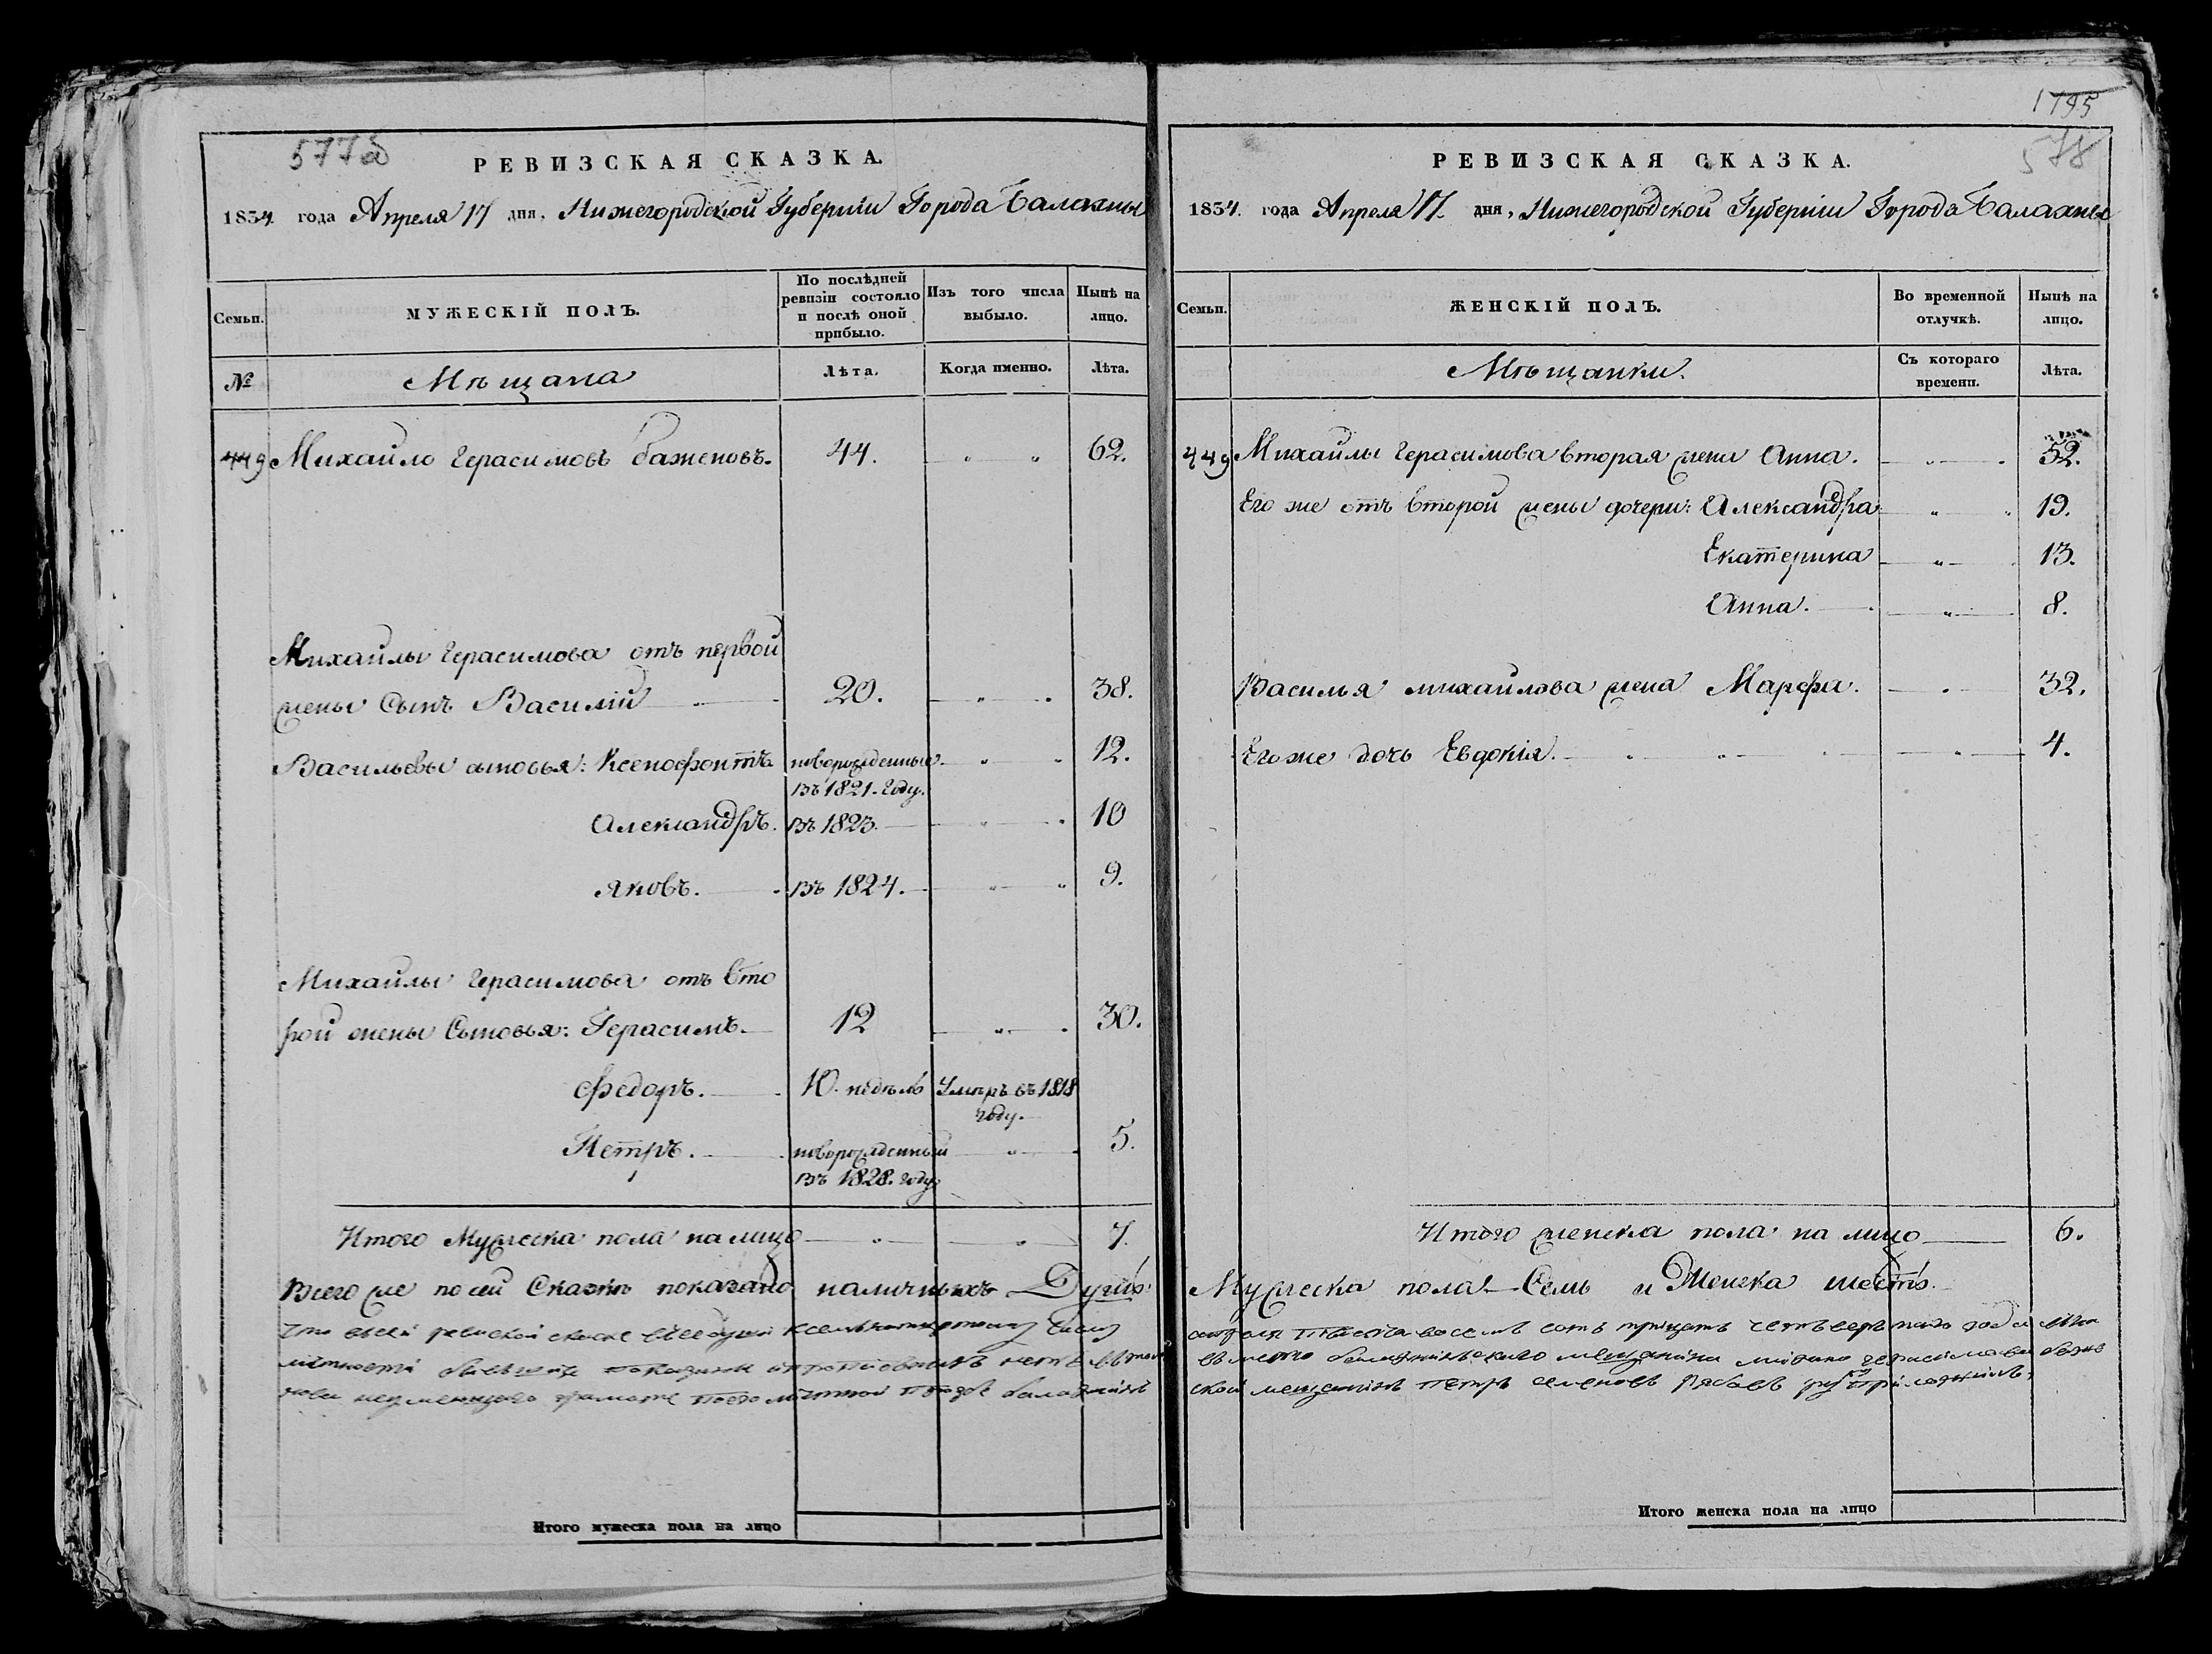 577об
РЕВИЗСКАЯ СКАЗКА.
1834 года Апреля 17 дня, Нижегородской Губерніи Города Балахны
Семьи.
МУЖЕСКІЙ ПОЛЪ.
По послѣдней
ревизіи состояло
и послѣ оной
прибыло.
Изъ того числа
выбыло.
Нынѣ на
лицо.
№
Мѣщана
Лѣта.
Когда именно.
Лѣта.
449 Михайло Герасимовъ Баженовъ. 44. „ „ 62.
Михайлы Герасимова отъ первой
жены Сынъ Василій 20. „ „ 38.
Васильевы сыновья: Ксенофонтъ новорожденные „ „ 12.
въ 1821. году.
Александръ. въ 1823. „ „ 10
Яковъ. въ 1824. „ „ 9.
Михайлы Герасимова отъ вто
рой жены Сыновья: Герасимъ. 12 „ „ 30.
Федоръ. 10. недѣль Умеръ въ 1818
году.
Петръ. новорожденный „ „ 5.
въ 1828. году
Итого Мужеска пола на лицо „ „ 7.
Всего же по сей Сказкѣ показано наличныхъ Душъ:
Что въсей ревиской скаске
грамоте
1795
578
РЕВИЗСКАЯ СКАЗКА.
1834. года Апреля 17. дня, Нижегородской Губерніи Города Балахны
Семьи.
ЖЕНСКІЙ ПОЛЪ.
Во временной
отлучкѣ.
Нынѣ на
лицо.
Мѣщанки.
Съ котораго
времени.
Лѣта.
449 Михайлы Герасимова вторая жена Анна. „ 52.
Его же отъ второй жены дочери: Александра „ „ 19.
Екатерина „ 13.
Анна. „ 8.
Василья Михайлова жена Марфа. „ 32.
Его же дочь Евдокія. „ „ „ 4.
Итого женска пола на лицо 6.
Мужеска пола Семь и Женска шесть.
восемь сотъ тритцать четьвертаго года
вместо мещанина михаила герасимова
мещенинъ петръ семеновъ рябовъ руку приложилъ
Итого мужеска пола на лицо
Итого женска пола на лицо